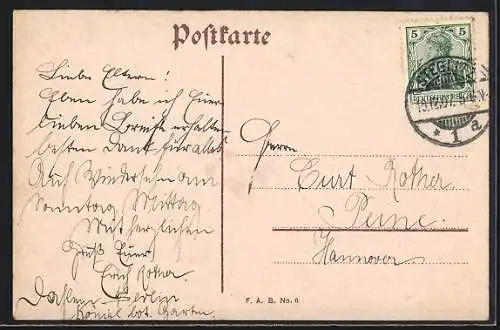 Postkarte
Liebe Eltern!
Eben habe ich Euer
lieben erhalten
besten Dank für alles
Auf Wiedersehn am
Sonntag Mittag
Mit herzlichen
Gruß Euer
Erich Rother.
Dahlem - Berlin
Königl. bot. Garten.
5 5
DEUTSCHES REICH
STEGLITZ
* 1 a
Herrn
Curt Rother
Peine
Hannover
F. A. B. No. 6